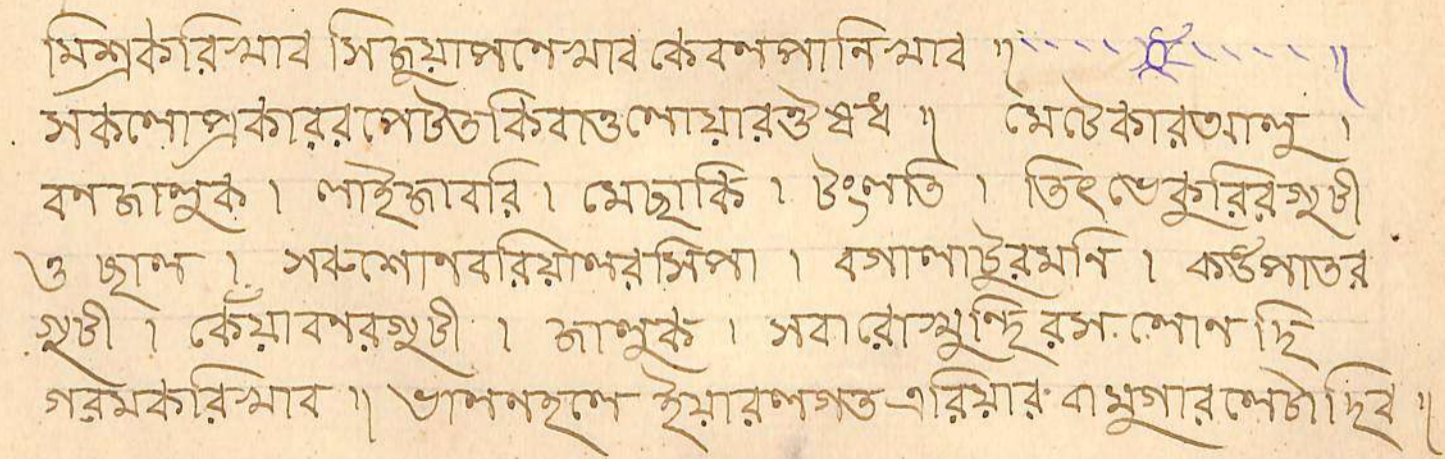 মিশ্ৰকৰি খাব সিজুয়াপনে খাব কেবলপানি খাব ॥ ॥
সকলোপ্ৰকাৰৰপেটত কিবাগুলোয়াৰঔষধ ॥ মৈটেকাৰআলু ।
বনজালুক । লাইজাবৰি । মেছাকি । টংলতি । তিৎভেকুৰিৰগুটী
ও ছাল । সৰুশোনবৰিয়ালৰসিপা । বগালাটুৰমনি ।
গুটী । জালুক । সবাৰো লোন দি
গৰমকৰি খাব ॥ ভালনহলে ইয়াৰলগত এৰিয়াৰ বা মুগাৰ লেটাদিব ॥